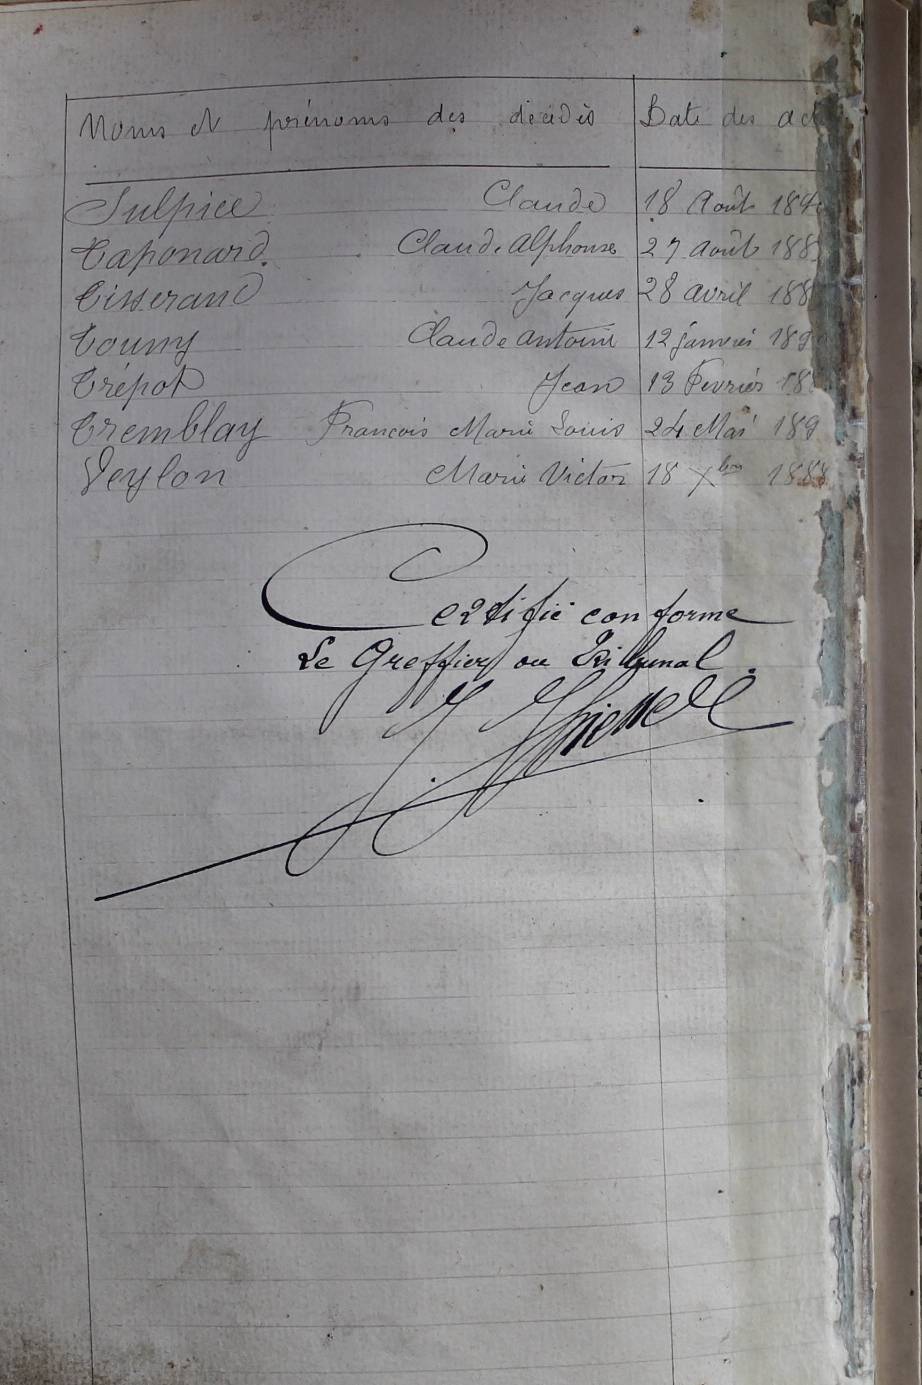 Noms et prénoms des décédés Date des act
Sulpice Claude 18 Août 189
Taponard Claude Alphonse 27 Août 188
Tisserand Jacques 28 avril 188
Toumy Claude Antoine 12 janvier 189
Trépot Jean 13 Fevrier 18
Tremblay François Marie Louis 24 Mai 189
Veylon Marie Victor 18 Xbre 1888
Certifié conforme
Le Greffier du Tribunal